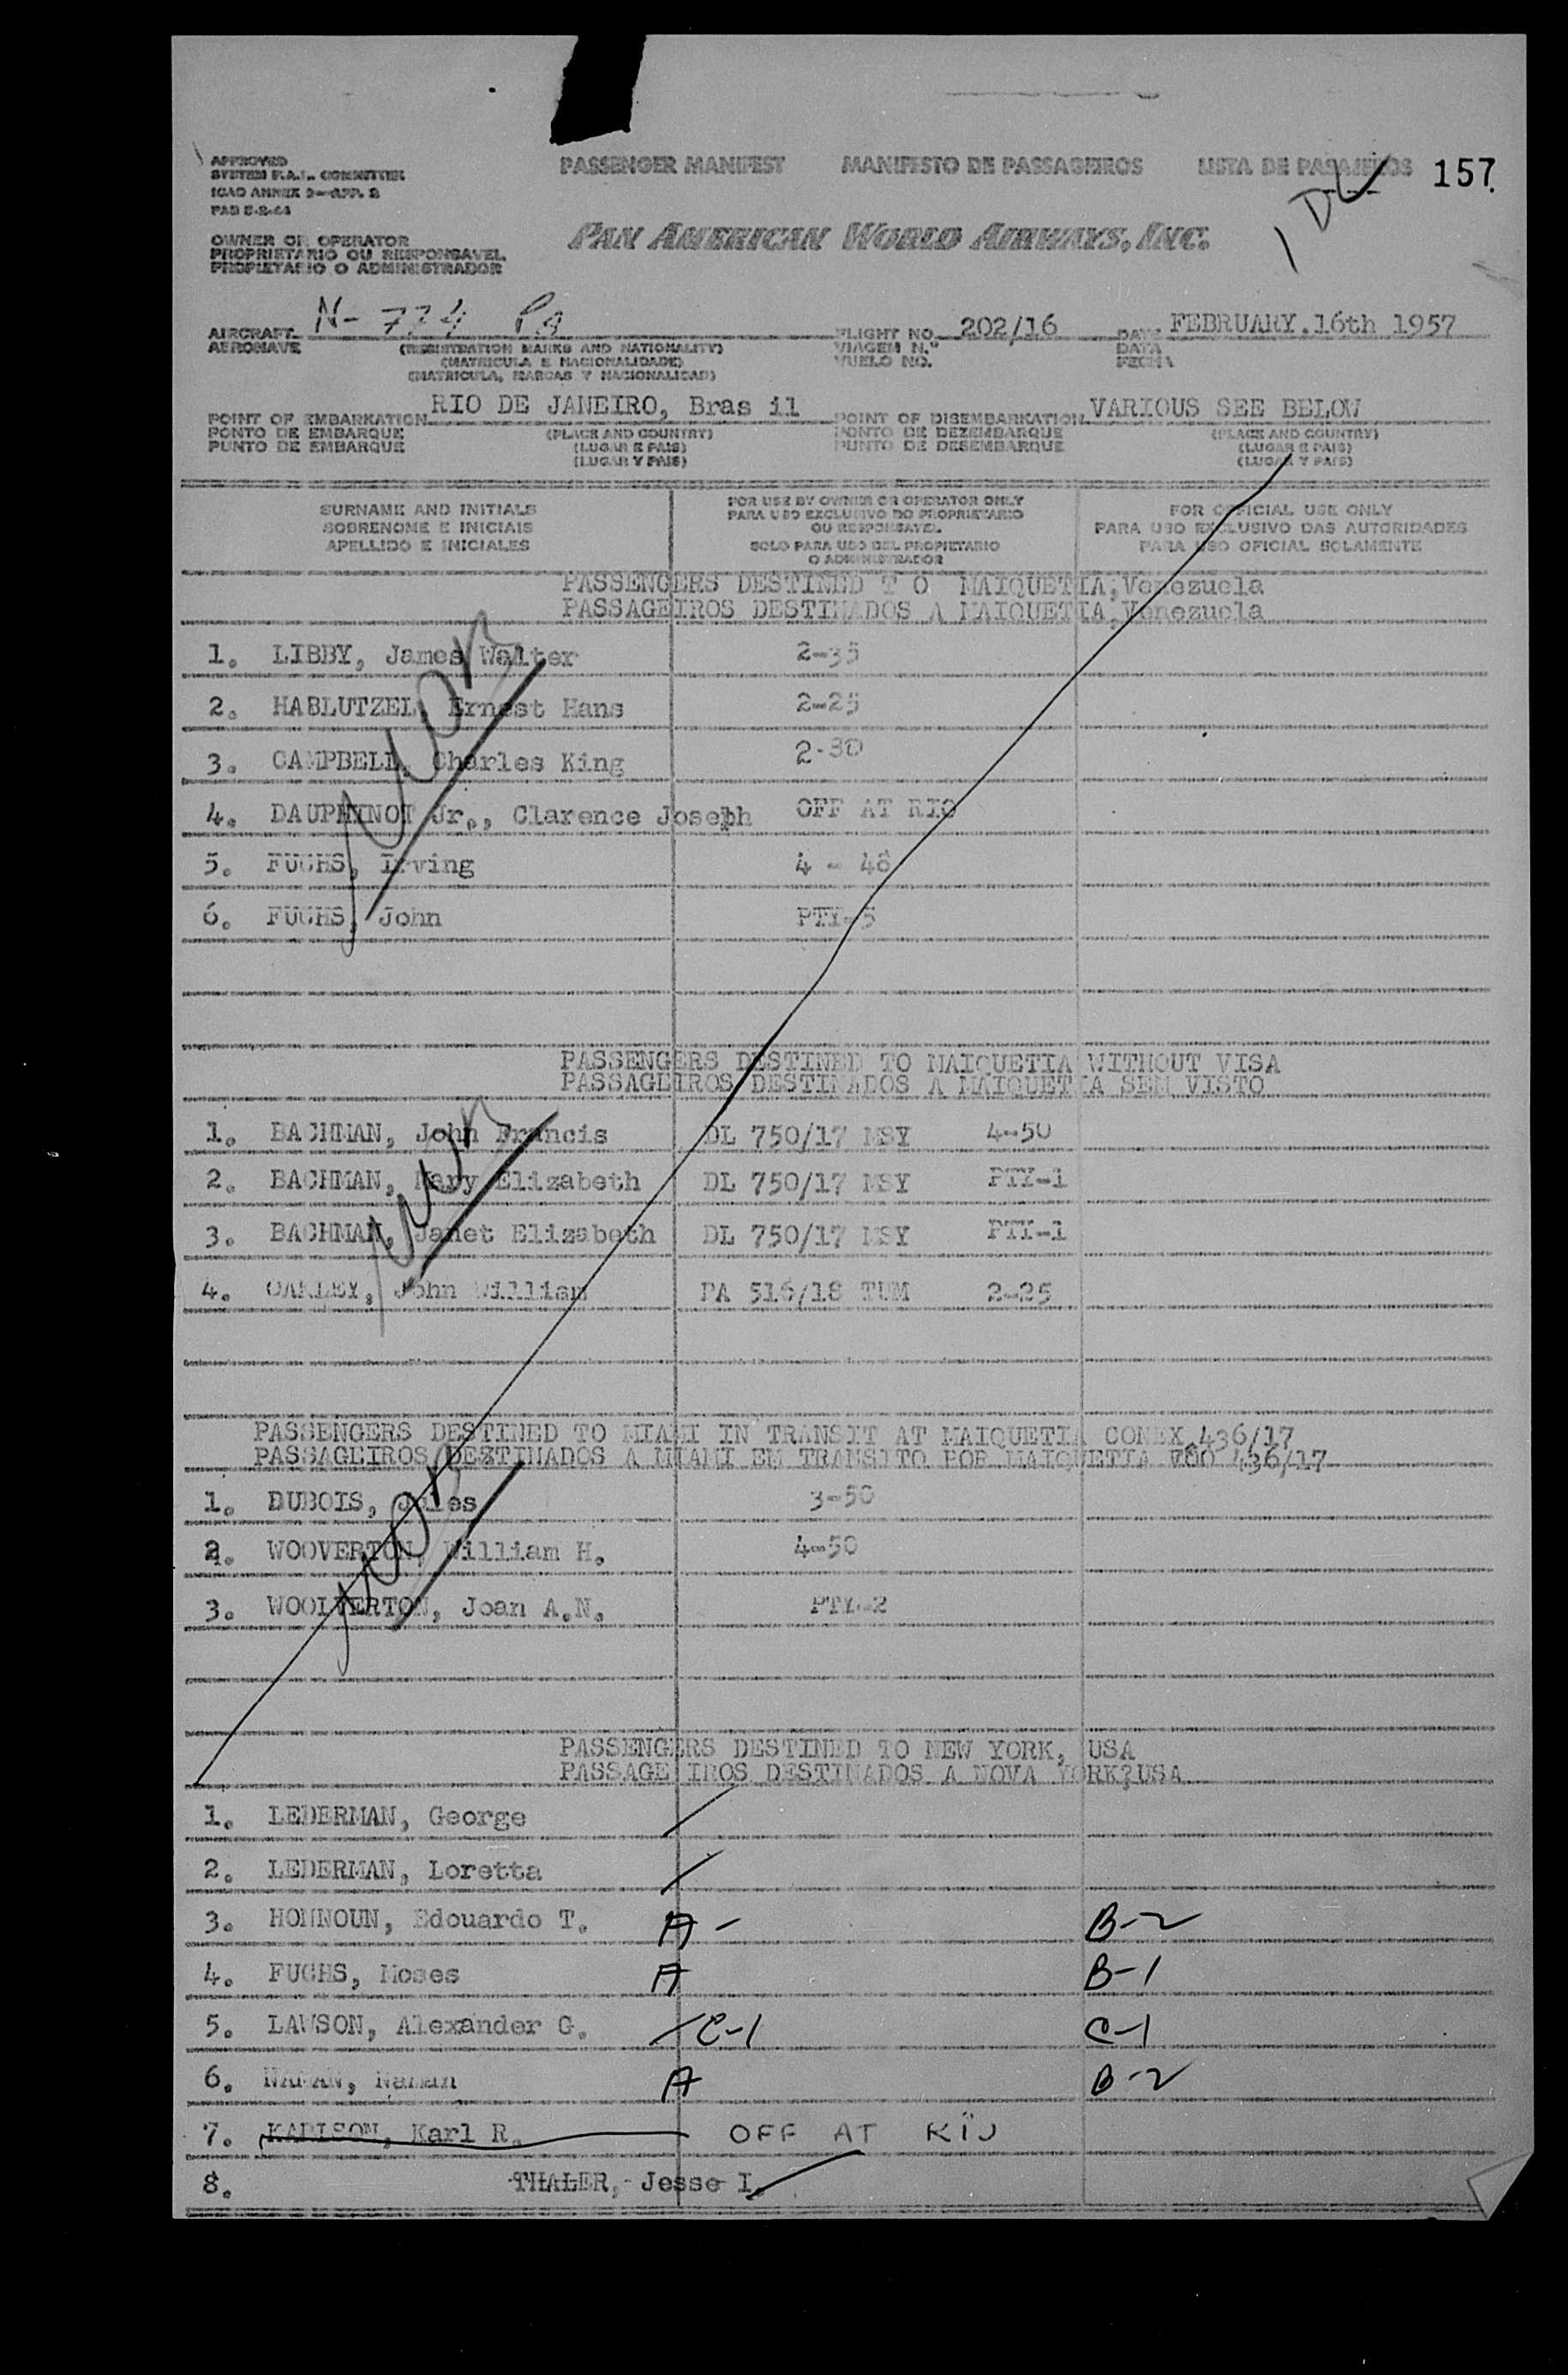 APPROVED
SYSTEM F.A.L. COMMITTEE
ICAO ANNEX 9—APP. 2
PASSENGER MANIFEST MANIFESTO DE PASSAGEIROS LISTA DE PASAJEROS 157
OWNER OR OPERATOR
PROPRIETARIO OU RESPONSAVEL
PROPIETARIO O ADMINISTRADOR
PAN AMERICAN WORLD AIRWAYS, INC.
AIRCRAFT N- 774 PA FLIGHT NO. 202/16 DATE FEBRUARY.16th 1957
AERONAVE (REGISTRATION MARKS AND NATIONALITY) VIAGEM N.º DATA
(MATRICULA E NACIONALIDADE) VUELO NO. FECHA
(MATRICULA, MARCAS Y NACIONALIDAD)
POINT OF EMBARKATION RIO DE JANEIRO, Bras il POINT OF DISEMBARKATION VARIOUS SEE BELOW
PONTO DE EMBARQUE (PLACE AND COUNTRY) PONTO DE DEZEMBARQUE (PLACE AND COUNTRY)
PUNTO DE EMBARQUE (LUGAR E PAIS) PUNTO DE DESEMBARQUE (LUGAR E PAIS)
(LUGAR Y PAIS) (LUGAR Y PAIS)
SURNAME AND INITIALS
SOBRENOME E INICIAIS
APELLIDO E INICIALES
FOR USE BY OWNER OR OPERATOR ONLY
PARA USO EXCLUSIVO DO PROPRIETARIO
OU RESPONSAVEL
SOLO PARA USO DEL PROPIETARIO
O ADMINISTRADOR
FOR OFFICIAL USE ONLY
PARA USO EXCLUSIVO DAS AUTORIDADES
PARA USO OFICIAL SOLAMENTE
PASSENGERS DESTINED T O MAIQUETIA,Venezuela
PASSAGEIROS DESTINADOS A MAIQUETIA,Venezuela
1. LIBBY, James Walter 2-35
2. HABLUTZEL, Ernest Hans 2-25
3. CAMPBELL, Charles King 2-30
4. DAUPHINOT Jr., Clarence Joseph OFF AT RIO
5. FUCHS, Irving 4 - 48
6. FUCHS, John PTY-5
PASSENGERS DESTINED TO MAIQUETIA WITHOUT VISA
PASSAGEIROS DESTINADOS A MAIQUETIA SEM VISTO
1. BACHMAN, John Francis DL 750/17 MSY 4-50
2. BACHMAN, Mary Elizabeth DL 750/17 MSY PTY-1
3. BACHMAN, Janet Elizabeth DL 750/17 MSY PTY-1
4. OAKLEY, John William PA 516/18 TUM 2-25
PASSENGERS DESTINED TO MIAMI IN TRANSIT AT MAIQUETIA CONEX.436/17
PASSAGEIROS DEZTINADOS A MIAMI EM TRANSITO POR MAIQUETIA VOO 436/17
1. DUBOIS, Jules 3-50
2. WOOVERTON, William H. 4-50
3. WOOLVERTON, Joan A.N. PTY-2
PASSENGERS DESTINED TO NEW YORK, USA
PASSAGE IROS DESTINADOS A NOVA YORK?USA
1. LEDERMAN, George
2. LEDERMAN, Loretta
3. HONNOUN, Edouardo T. A - B-2
4. FUCHS, Moses A B-1
5. LAWSON, Alexander G. C-1 C-1
6. A B-2
7. KARLSON, Karl R. OFF AT RIO
8. THALER, Jesse I.